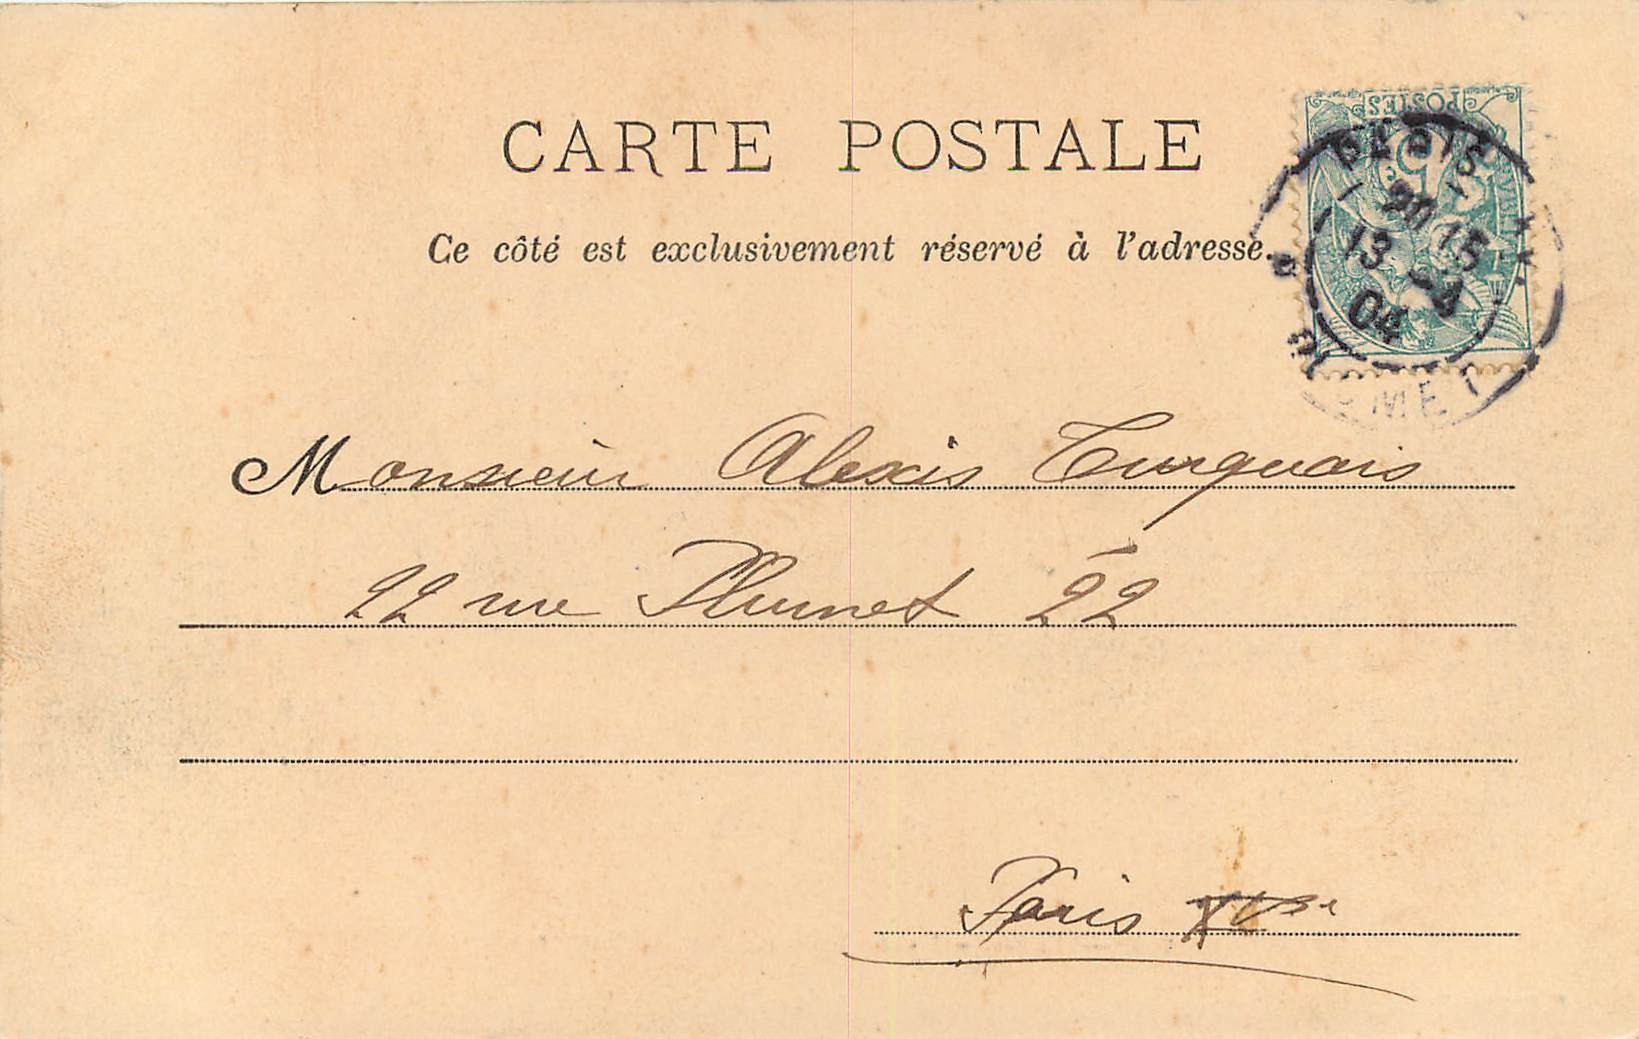 CARTE POSTALE
Ce côté est exclusivement réservé à l'adresse.
POSTES
5
PARIS XV
20 15
13 -4
04
Monsieur Alexis Turquais
22 rue Plumet 22
Paris XVe